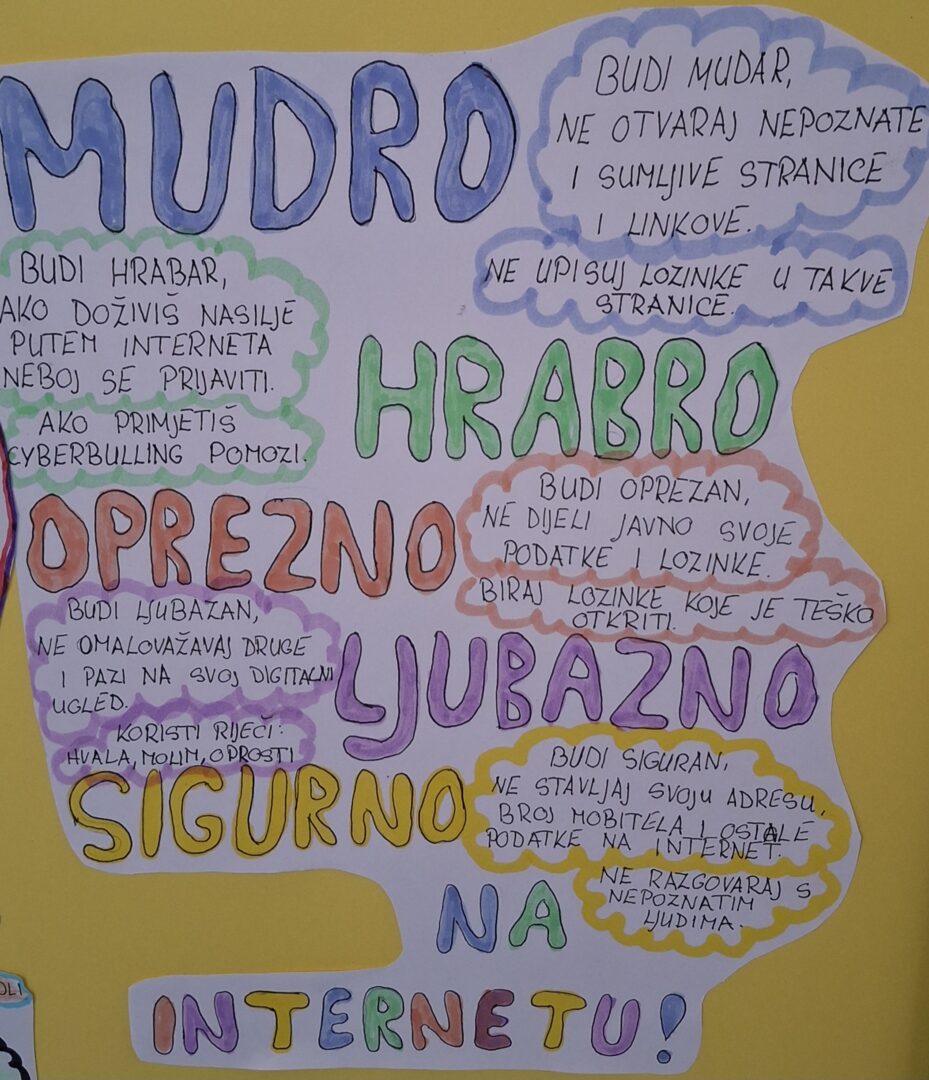 MUDRO
BUDI MUDAR,
NE OTVARAJ NEPOZNATE
I SUMLJIVE STRANICE
I LINKOVE.
NE UPISUJ LOZINKE U TAKVE
STRANICE.
BUDI HRABAR,
AKO DOŽIVIŠ NASILJE
PUTEM INTERNETA
NEBOJ SE PRIJAVITI.
AKO PRIMJETIŠ
CYBERBULLING POMOZI.
HRABRO
OPREZNO
BUDI OPREZAN,
NE DIJELI JAVNO SVOJE
PODATKE I LOZINKE.
BIRAJ LOZINKE KOJE JE TEŠKO
OTKRITI.
BUDI LJUBAZAN,
NE OMALOVAŽAVAJ DRUGE
I PAZI NA SVOJ DIGITALNI
UGLED.
KORISTI RIJEČI:
HVALA, MOLIM, OPROSTI
LJUBAZNO
SIGURNO
BUDI SIGURAN,
NE STAVLJAJ SVOJU ADRESU,
BROJ MOBITELA I OSTALE
PODATKE NA INTERNET.
NE RAZGOVARAJ S
NEPOZNATIM
LJUDIMA.
NA
INTERNETU!